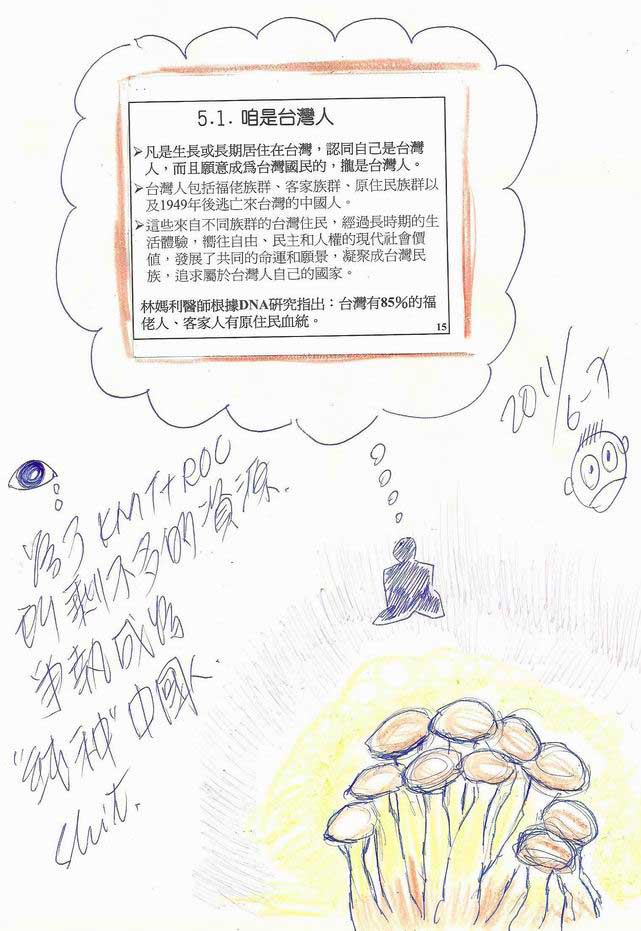 5.1. 咱是台灣人
➢凡是生長或長期居住在台灣，認同自己是台灣
人，而且願意成為台灣國民的，攏是台灣人。
➢台灣人包括福佬族群、客家族群、原住民族群以
及1949年後逃亡來台灣的中國人。
➢這些來自不同族群的台灣住民，經過長時期的生
活體驗，嚮往自由、民主和人權的現代社會價
值，發展了共同的命運和願景，凝聚成台灣民
族，追求屬於台灣人自己的國家。
林媽利醫師根據DNA研究指出：台灣有85%的福
佬人、客家人有原住民血統。
15
2011/
為了KMT+ROC
所剩不多的資源.
爭執成為
中國人
Shit.